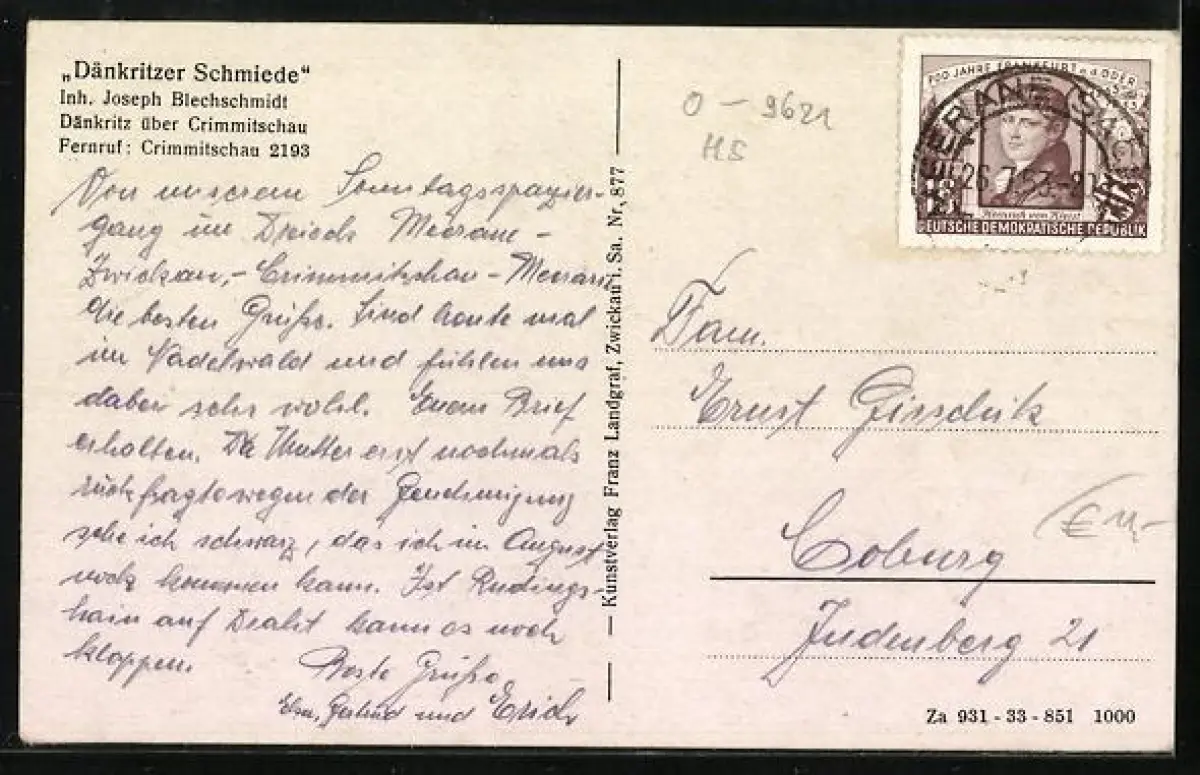 „Dänkritzer Schmiede“
Inh. Joseph Blechschmidt
Dänkritz über Crimmitschau
Fernruf: Crimmitschau 2193
Von unserem Sonntagsspazier-
gang im Dreieck Meerane -
Zwickau, - Crimmitschau - Meerane
die besten Grüße. Sind heute mal
im Nadelwald und fühlen uns
dabei sehr wohl. Euern Brief
erhalten. Da Mutter erst nochmals
rückfragte wegen der Genehmigung
sehe ich schwarz, das ich im August
noch kommen kann. Ist Rudings-
hain auf Draht kann es noch
kloppen.
Beste Grüße
und Erich
Kunstverlag Franz Landgraf, Zwickau i. Sa. Nr. 877
O - 9621
HS
700 JAHRE FRANKFURT a.d. ODER
MEERANE (SACHS)
26.7.53
Heinrich von Kleist
DEUTSCHE DEMOKRATISCHE REPUBLIK
Fam.
Ernst
Coburg
Judenberg 21
Za 931 - 33 - 851 1000